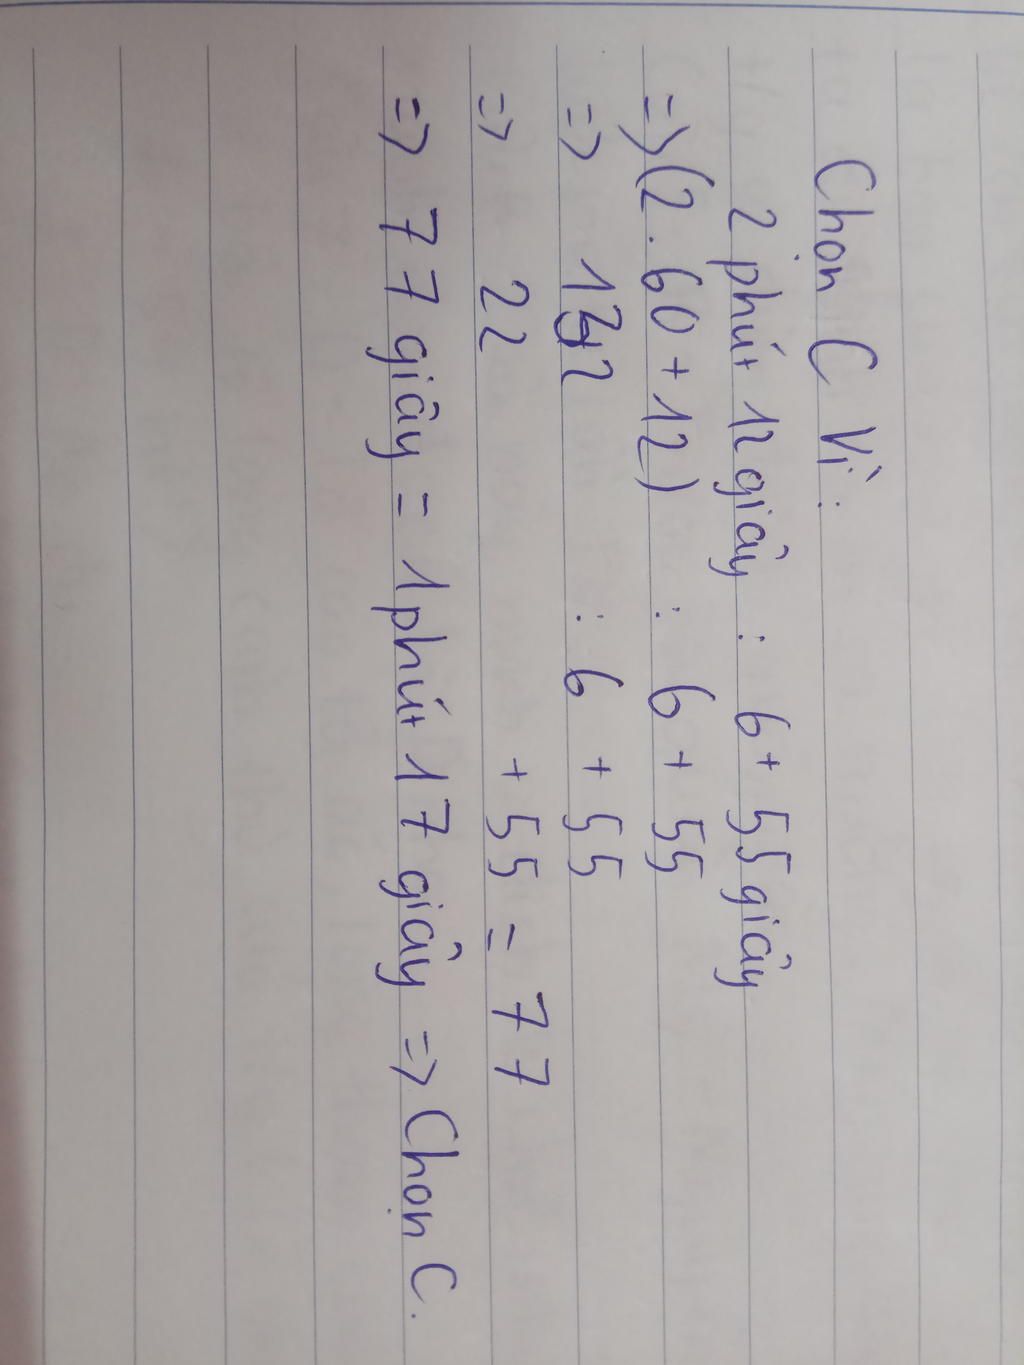 Chọn C Vì:
2 phút 12 giây : 6 + 55 giây
=> (2.60+12) : 6 + 55
=> 132 : 6 + 55
=> 22 + 55 = 77
=> 77 giây = 1 phút 17 giây => Chọn C.